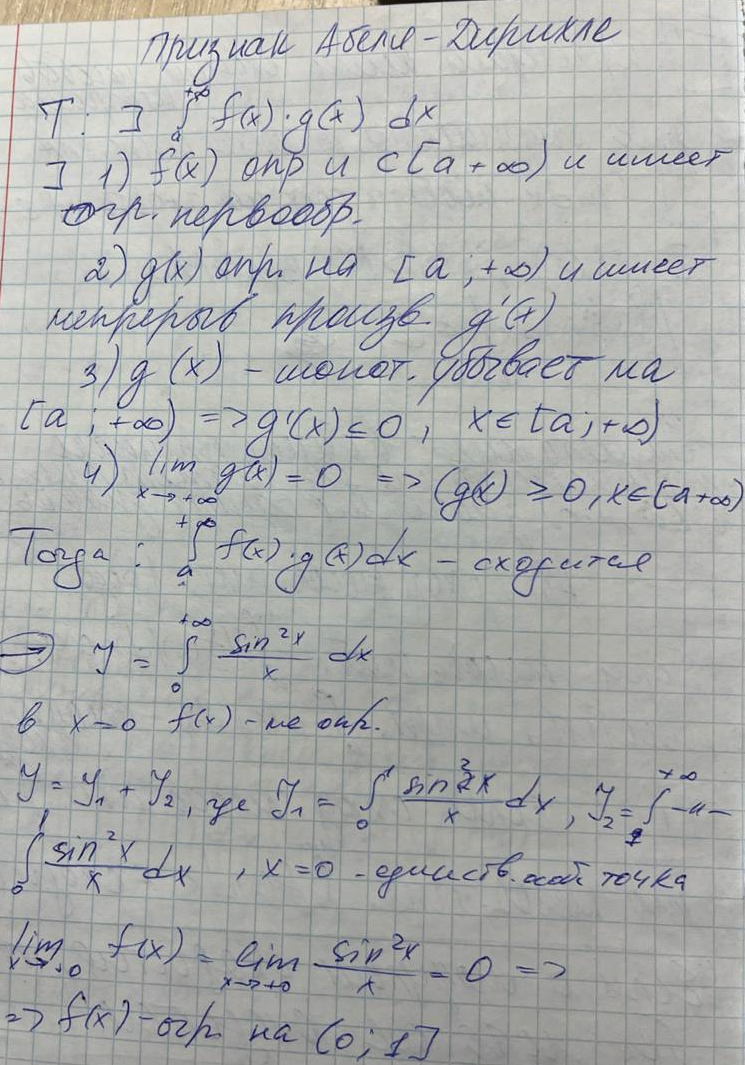 Признак Абеля-Дирихле
Т: ∃ ∫ₐ^{+∞} f(x)·g(x) dx
] 1) f(x) опр и C[a +∞) и имеет
огр. первообр.
2) g(x) опр. на [a ; +∞) и имеет
непрерыв произв. g'(x)
3) g(x) - монот. убывает на
[a ; +∞) => g'(x) ≤ 0, x∈[a; +∞)
4) lim_{x→+∞} g(x) = 0 => (g(x) ≥ 0, x∈[a +∞)
Тогда: ∫ₐ^{+∞} f(x)·g(x)dx - сходится
→ Y = ∫₀^{+∞} sin²x/x dx
в x=0 f(x) - не опр.
Y = Y₁ + Y₂, где Y₁ = ∫₀¹ sin²x/x dx, Y₂ = ∫₁^{+∞} -"-
∫₀¹ sin²x/x dx, x=0 - единств. точка
lim_{x→+0} f(x) = lim_{x→+0} sin²x/x = 0 =>
=> f(x) - огр. на (0; 1]